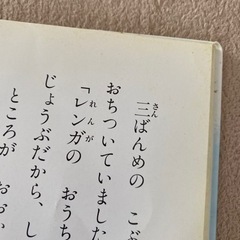 三ばんめの こぶ
おちついていました
「レンガの おうち
じょうぶだから、し
ところが おお